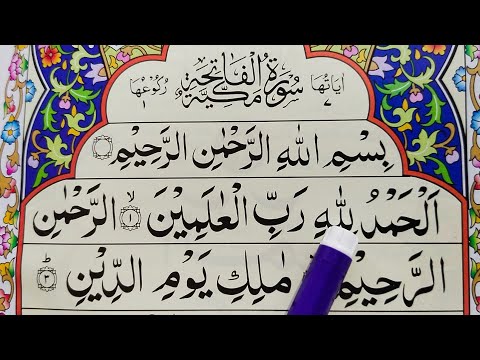 اٰیَاتُهَا ٧ سُوْرَةُ الْفَاتِحَةِ مَكِّيَّةٌ رُكُوْعُهَا ١
بِسْمِ اللهِ الرَّحْمٰنِ الرَّحِيْمِ ۝
اَلْحَمْدُ لِلّٰهِ رَبِّ الْعٰلَمِيْنَ ۝١ۙ الرَّحْمٰنِ
الرَّحِيْمِ مٰلِكِ يَوْمِ الدِّيْنِ ۝٣ؕ